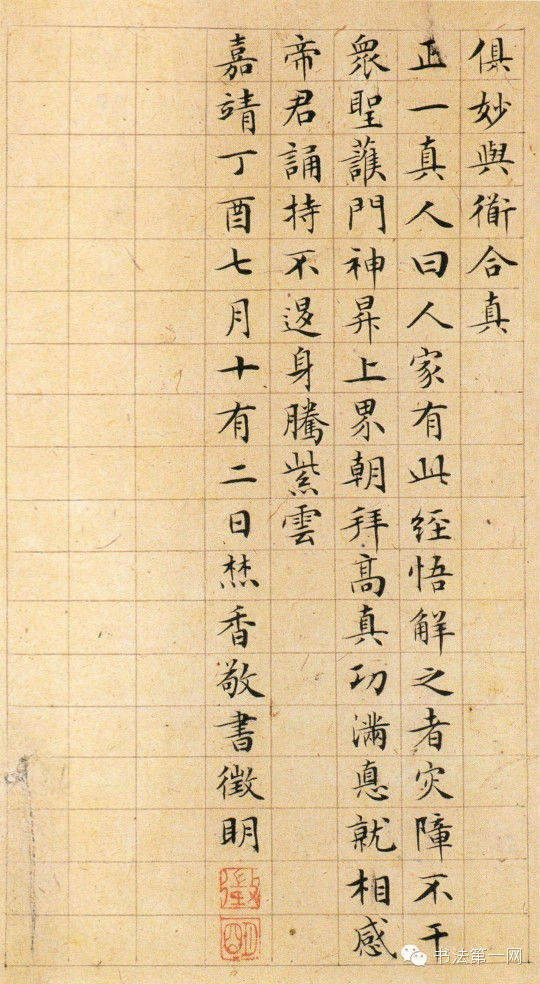 俱妙與衟合真
正一真人曰人家有此經悟解之者灾障不干
衆聖護門神昇上界朝拜高真功滿悳就相感
帝君誦持不退身騰紫雲
嘉靖丁酉七月十有二日焚香敬書徵明
徵
明
书法第一网